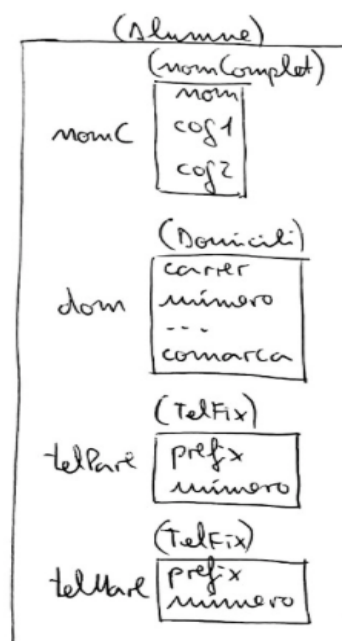 (Alumne)
(nomComplet)
nom
nomC cog1
cog2
(Domicili)
carrer
dom número
...
comarca
(TelFix)
telPare prefix
número
(TelFix)
telMare prefix
número